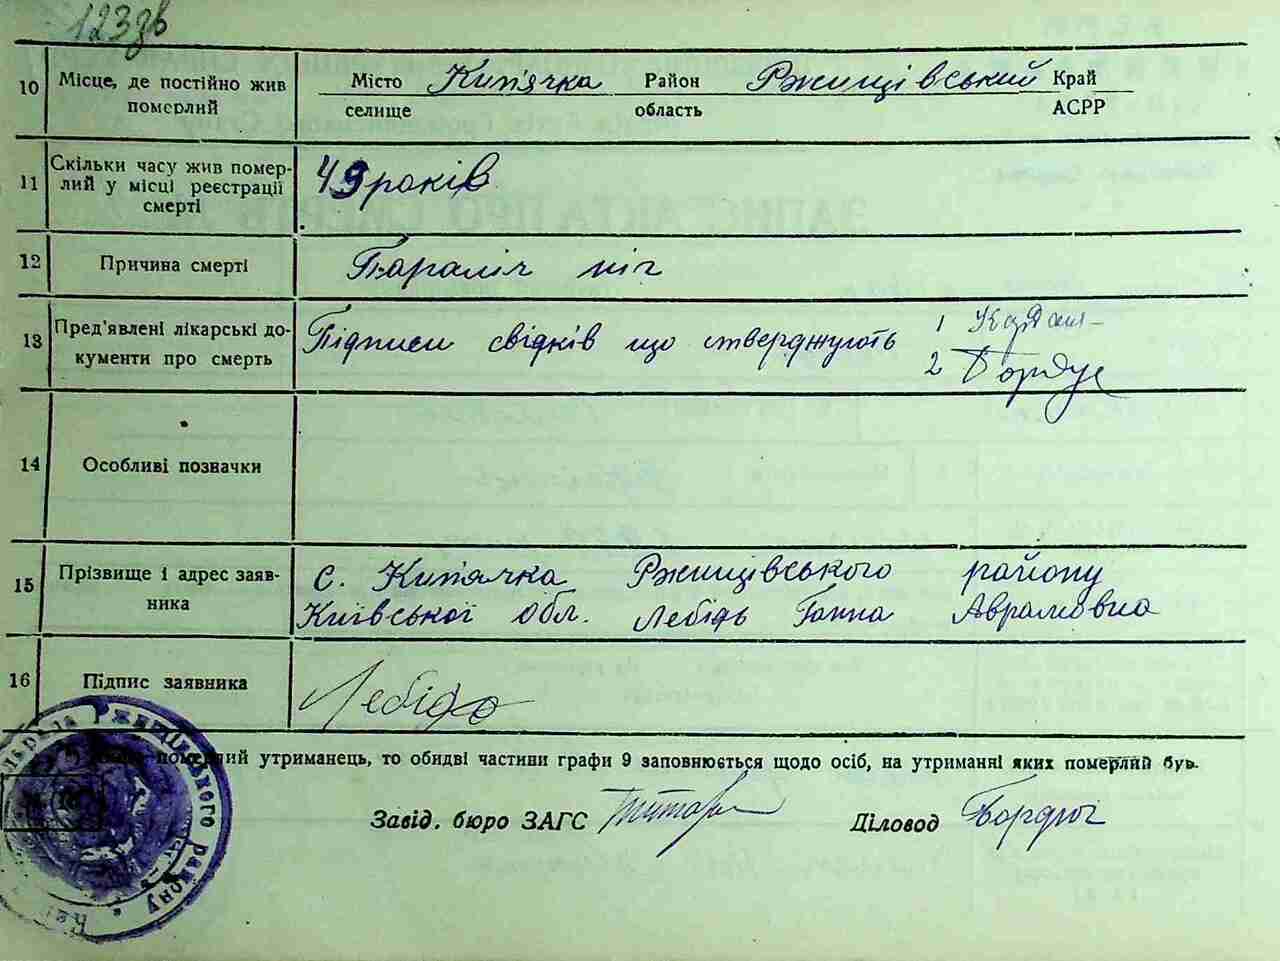 123зв
10 Місце, де постійно жив померлий Місто Кип'ячка Район Ржищівський Край
селище область АСРР
11 Скільки часу жив помер-
лий у місці реєстрації
смерті 49 років
12 Причина смерті Параліч ніг
13 Пред'явлені лікарські до-
кументи про смерть Підписи свідків що стверджують 1
2 Бордюг
14 Особливі позначки
15 Прізвище і адрес заяв-
ника с. Кип'ячка Ржищівського району
Київської обл. Лебідь Ганна Аврамовна
16 Підпис заявника Лебідь
померлий утриманець, то обидві частини графи 9 заповнюється щодо осіб, на утриманні яких померлий був.
Завід. бюро ЗАГС Діловод Бордюг
Ржищівського району